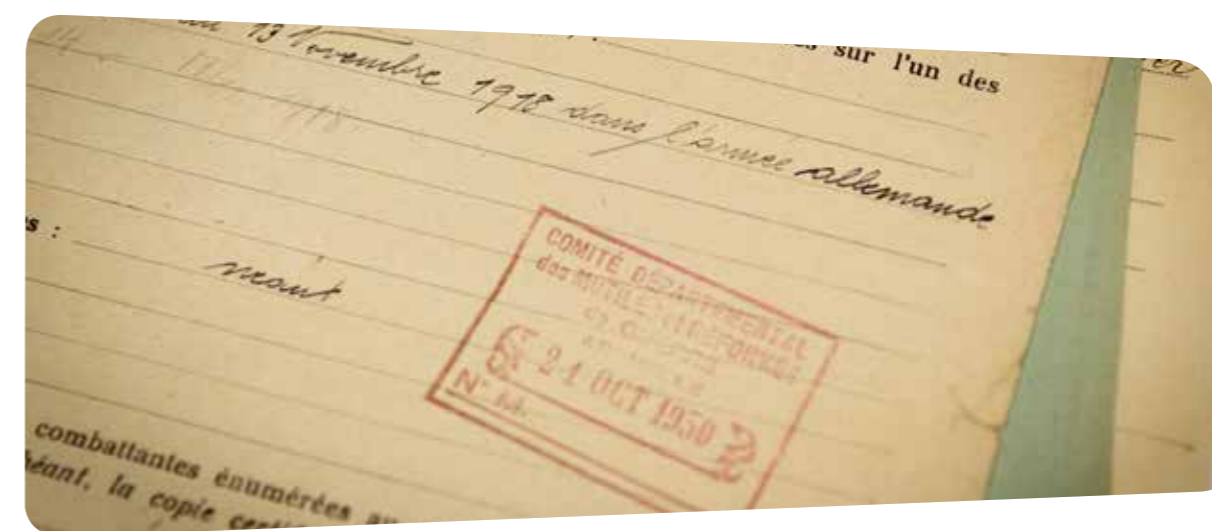 sur l'un des
du 13 Novembre 1918 dans l'armée allemande
s :
néant
COMITÉ DÉPARTEMENTAL
des MUTILÉS et RÉFORMÉS
21 OCT 1930
N°
combattantes énumérées au
héant, la copie certi